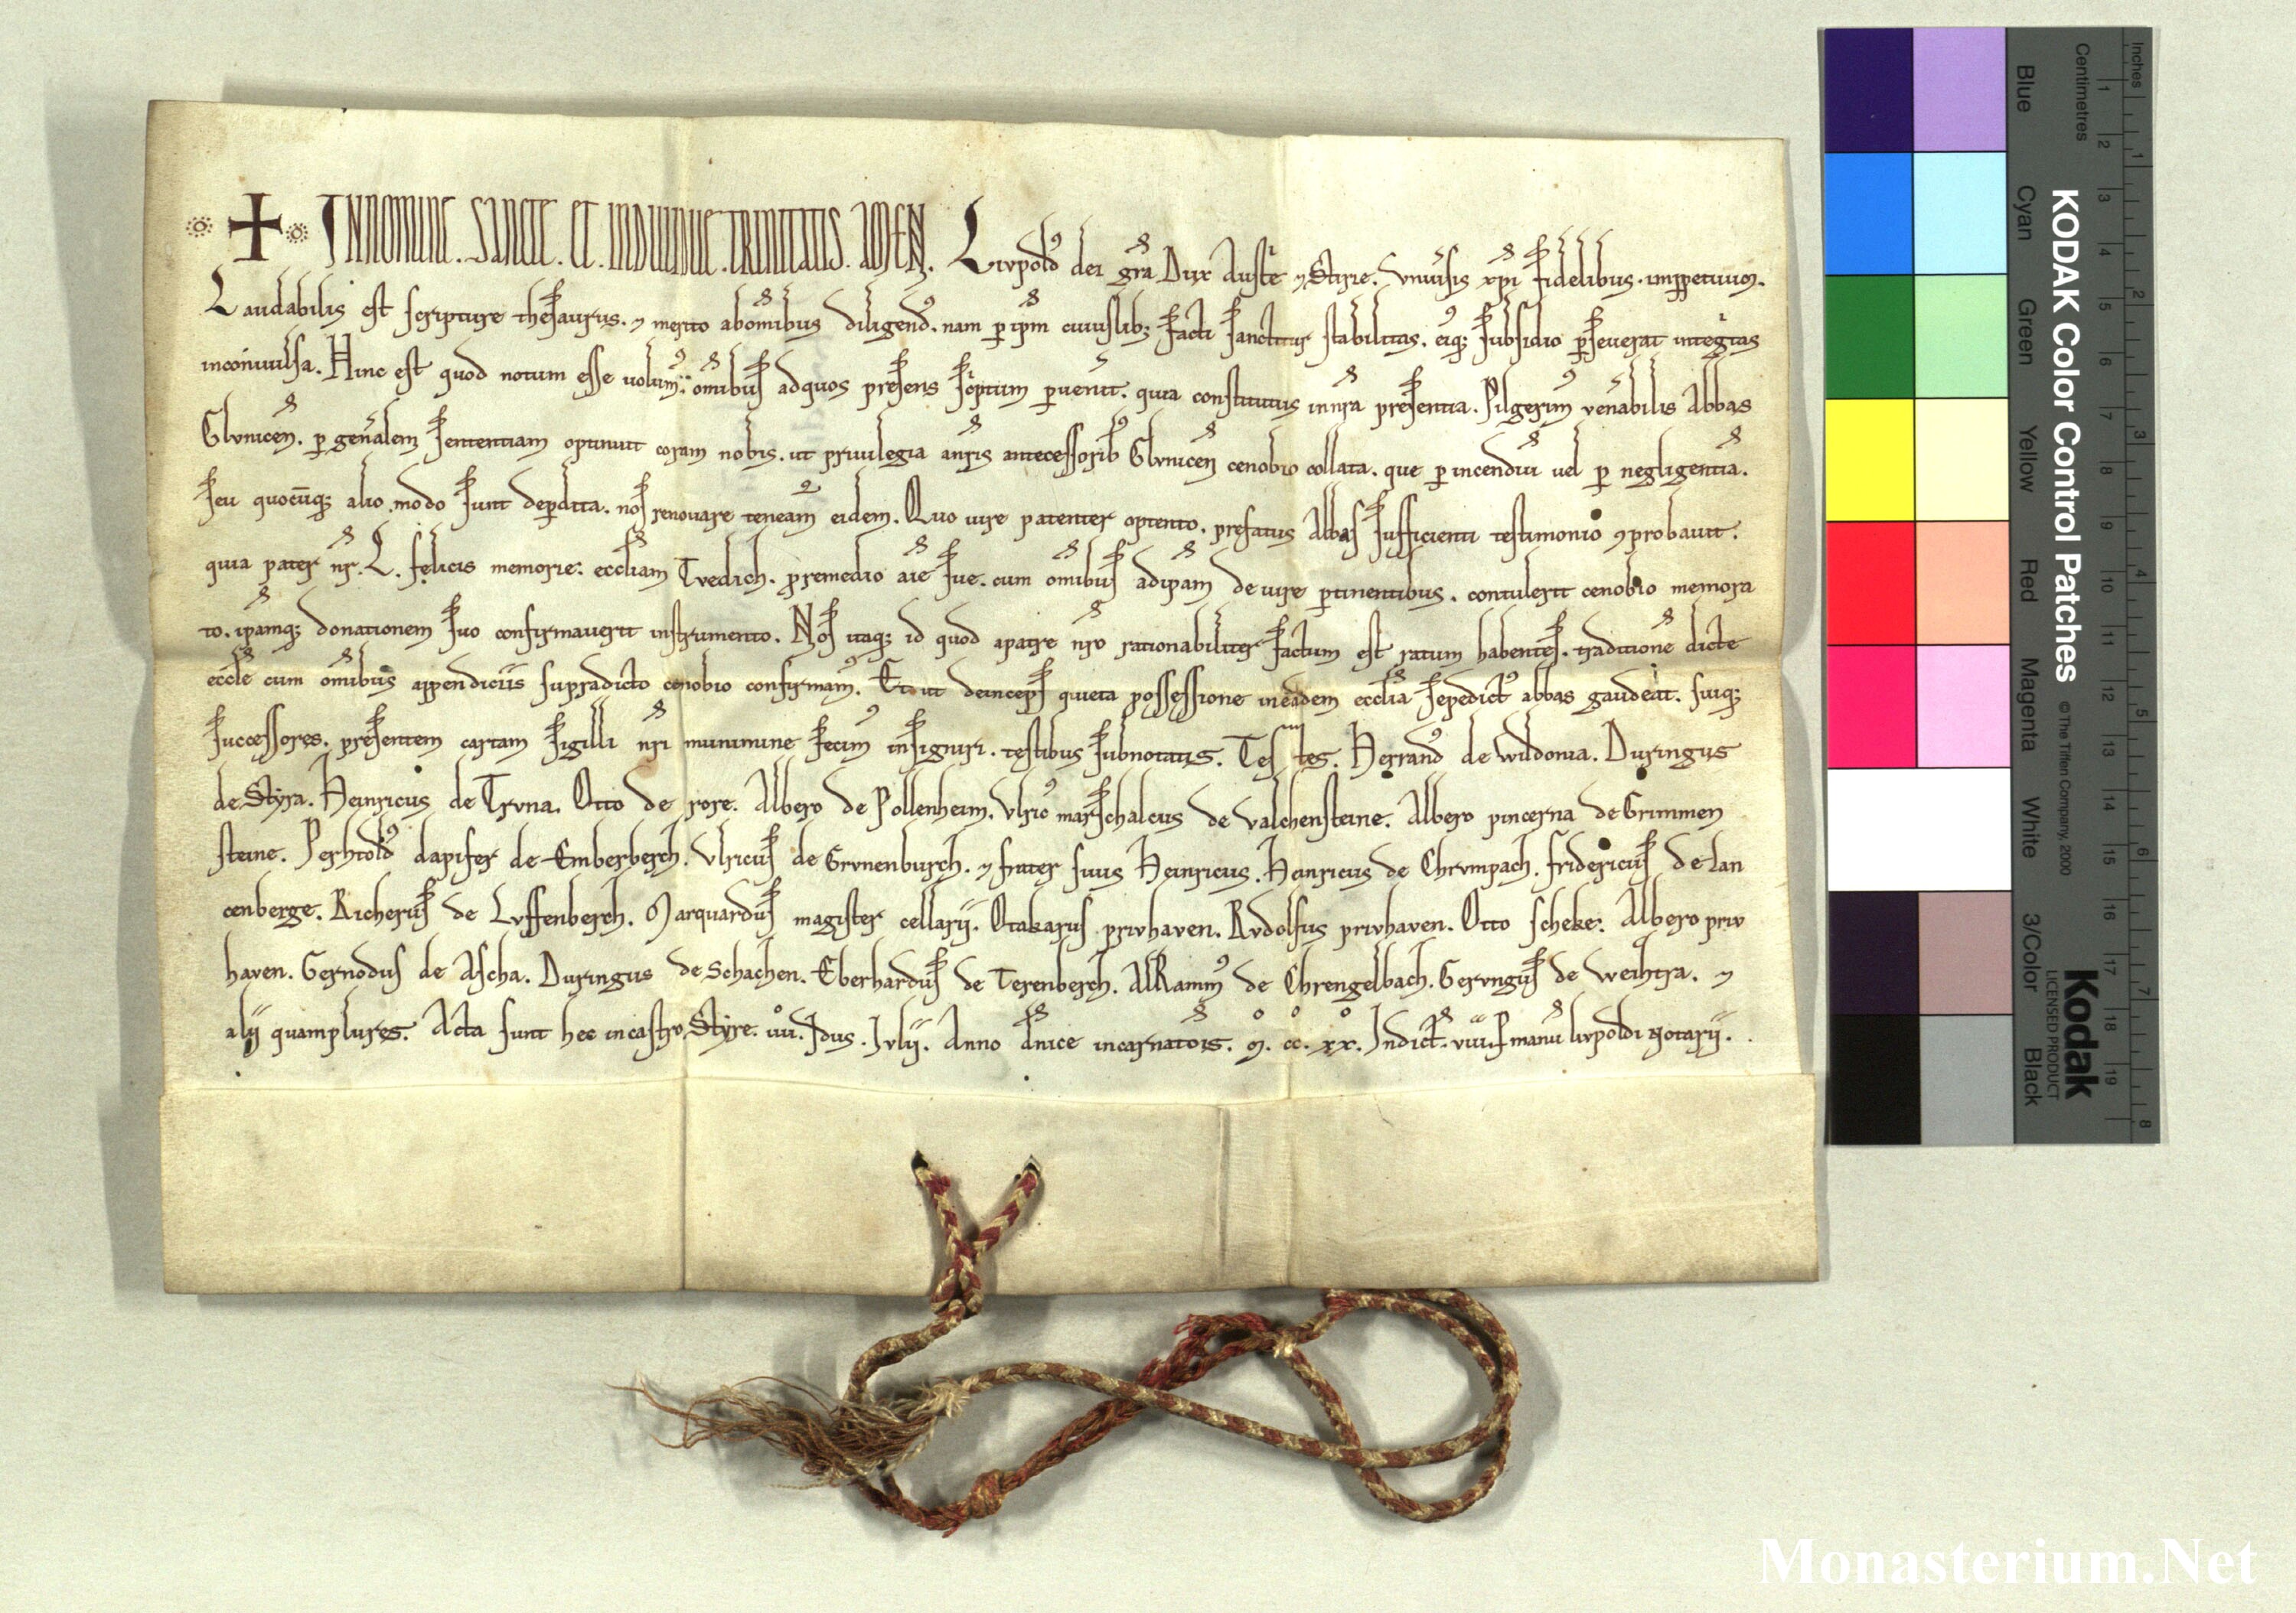 ✝ IN NOMINE. SANCTE. ET. INDIVIDUE. TRINITATIS. AMEN. Livpold' dei gr̄a Dux Austͥe ⁊ Styrie. Vniuͥsis xp̄i fidelibus. imppetuum.
Laudabilis est scripture thesaurus. ⁊ merito abom̄ibus diligend'. nam p ip̄m cuiuslib; facti sanctitur stabilitas. eiq; subsidio pseuerat integͥtas
inconuulsa. Hinc est quod notum esse uolum'. om̄ibus adquos presens scͥptum puen̄it. quia constitutus in nr̄a presentia. Pilgerim' ven̄abilis Abbas
Glvnicen̄. p gen̄alem sententiam optinuit coram nobis. ut priuilegia anr̄is antecessorib' Glvnicen̄ cenobio collata. que p incendiū uel p negligentiā.
seu quocūq; alio modo sunt depdita. nos renouare teneam' eidem. Quo iure patenter optento. prefatus Abbas sufficienti testimonio ꝯprobauit.
quia pater nr̄. L. felicis memorie: eccl̄iam Tvedich. premedio aīe sue. cum om̄ibus adip̄am de iure ptinentibus. contulerit cenobio memora
to. ip̄amq; donationem suo confirmauerit instrumento. Nos itaq; id quod apatre nr̄o rationabiliter factum est ratum habentes. traditionē dicte
eccl̄e cum om̄ibus appendiciis supradicto cenobio confirmam'. Et ut deinceps quieta possessione ineadem eccl̄ia sepedict' abbas gaudeat. suiq;
successores. presentem cartam sigilli nr̄i munimine fecim' insigniri. testibus subnotatis. Testes. sunt Herrand' de Wildonia. Duringus
de Styra. Heinricus de Trvna. Otto de rore. Albero de Pollenheim. Vlric' marschalcus de valchensteine. Albero pincerna de Grimmen
steine. Perhtold' dapifer de Emberberch. Vlricus de Grvnenburch. ⁊ frater suus Heinricus. Heinricus de Chrvmpach. fridericus de Lan
cenberge. Richerus de Lvffenberch. Marquardus magister cellarii. Otakarus privhaven. Rvdolfus privhaven. Otto scheke. Albero priv
haven. Gernodus de Ascha. Duringus de Schachen. Eberhardus de Terenberch. AlRamm' de Chrengelbach. Gervngus de Weihtra. ⁊
alii quamplures. Acta sunt hec in castro Styre. iiii. Idus. Ivlii. Anno dn̄ice incarnatōis. M. CC. XX. Indict̄. viii. p manū livpoldi Notarii.
KODAK Color Control Patches
© The Tiffen Company, 2000
Kodak
LICENSED PRODUCT
Inches 1 2 3 4 5 6 7 8
Centimetres 1 2 3 4 5 6 7 8 9 10 11 12 13 14 15 16 17 18 19
Blue Cyan Green Yellow Red Magenta White 3/Color Black
Monasterium.Net